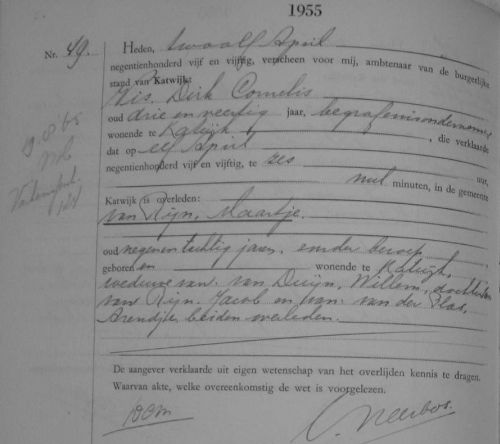 1955
Nr. 49.
Heden, twaalf April
negentienhonderd vijf en vijftig, verscheen voor mij, ambtenaar van de burgerlijke
stand van Katwijk:
His. Dirk Cornelis
oud drie en veertig jaar, begrafenisondernemer
wonende te Katwijk, die verklaarde
dat op elf April
negentienhonderd vijf en vijftig, te zes uur,
nul minuten, in de gemeente
Katwijk is overleden:
van Rijn, Maartje.
oud negen en tachtig jaren, zonder beroep
geboren en wonende te Katwijk,
weduwe van van Duijn, Willem, dochter van
van Rijn, Jacob en van van der Plas,
Arendje, beiden overleden.
De aangever verklaarde uit eigen wetenschap van het overlijden kennis te dragen.
Waarvan akte, welke overeenkomstig de wet is voorgelezen.